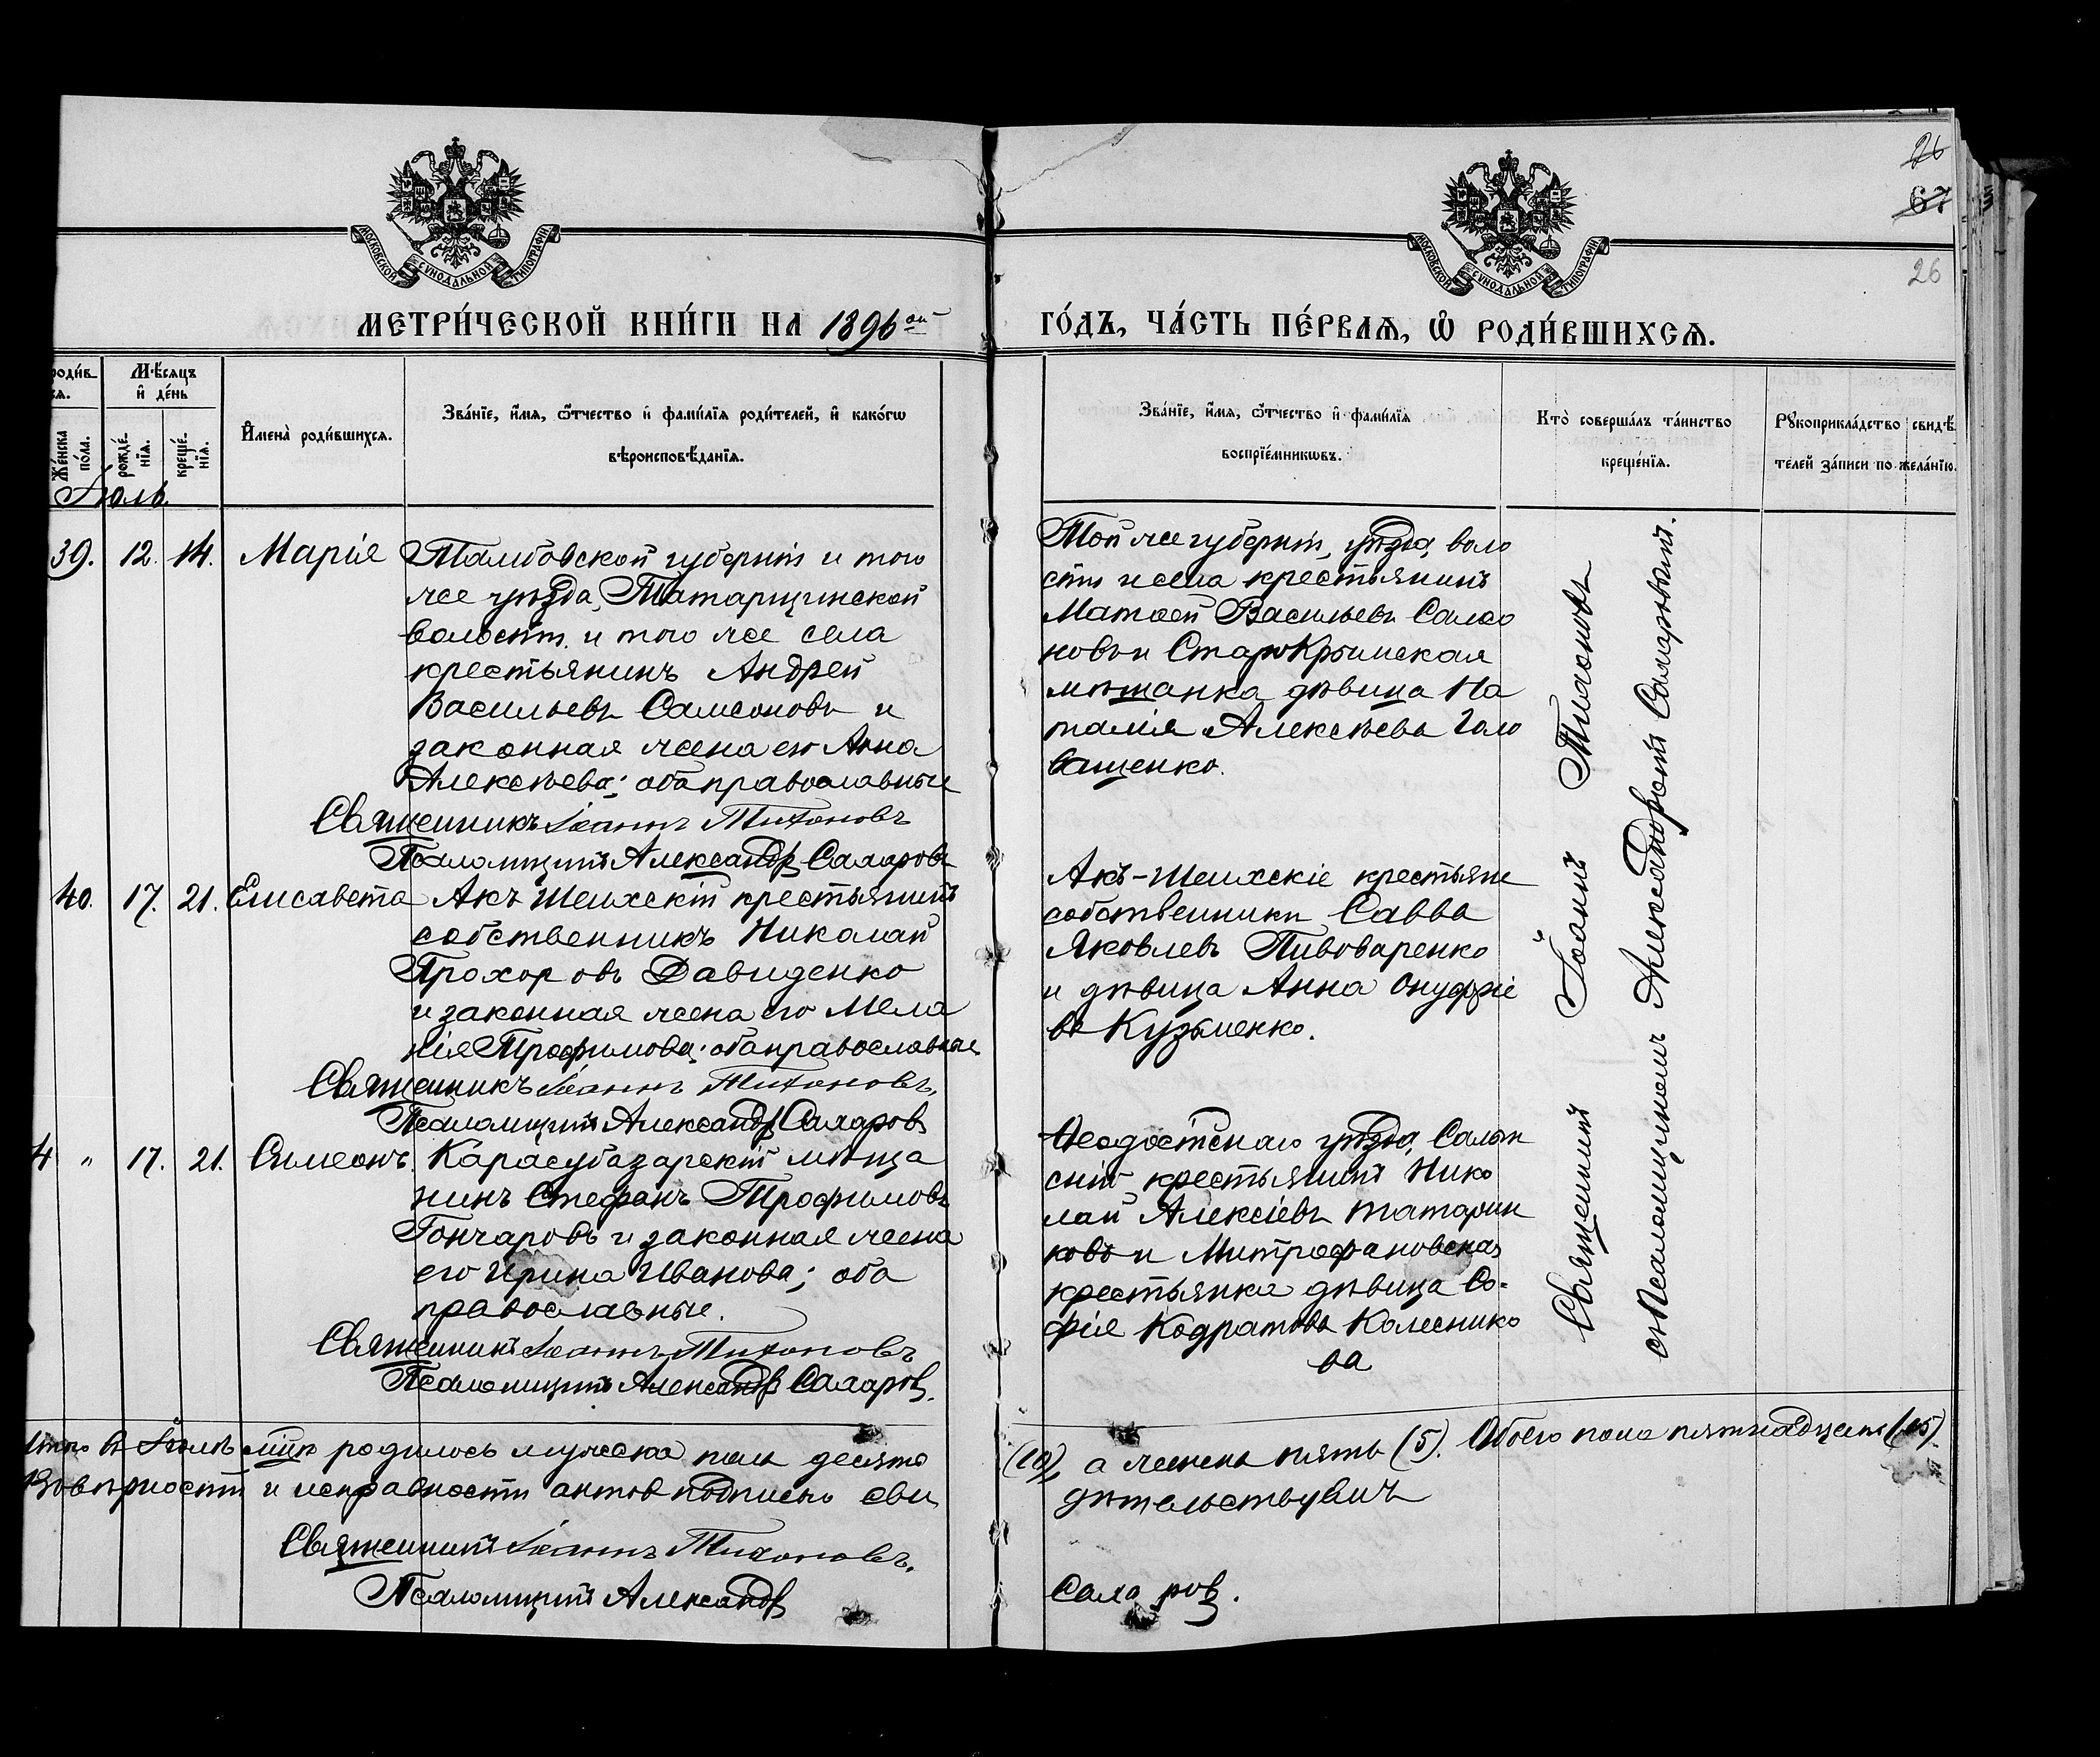 26
67
26
МОСКОВСКОЙ СѴНОДАЛЬНОЙ ТИПОГРАФІИ
МОСКОВСКОЙ СѴНОДАЛЬНОЙ ТИПОГРАФІИ
МЕТРИ́ЧЕСКОЙ КНИ́ГИ НА 1896 ой
ГО́ДЪ, ЧА́СТЬ ПЕ́РВАѦ, Ѽ РОДИ́ВШИХСѦ.
роди́в
сѧ.
Мѣ́сѧцъ
и҆ де́нь
Же́нска
по́ла.
рожде́-
нїѧ.
креще́-
нїѧ.
И҆мена̀ роди́вшихсѧ.
Зва́нїе, и҆́мѧ, ѻ҆́тчество и҆ фами́лїѧ роди́телей, и҆ како́гѡ
вѣроисповѣ́данїѧ.
Зва́нїе, и҆́мѧ, ѻ҆́тчество и҆ фами́лїѧ
воспрїе́мникѡвъ.
Кто̀ соверша́лъ та́инство
креще́нїѧ.
Рꙋкоприкла́дство свидѣ́-
телей за́писи по жела́нїю.
Іюль
39. 12. 14. Марія Тамбовской губерніи и того
же уѣзда, Татарщинской
волости и того же села
крестьянинъ Андрей
Васильевъ Самсоновъ и
законная жена его Анна
Алексѣева; оба православные
Священникъ Іоаннъ Тихоновъ
Псаломщикъ Александръ Сахаровъ
Той же губерніи, уѣзда, воло
сти и села крестьянинъ
Матѳей Васильевъ Самсо
новъ и Старокрымская
мѣщанка дѣвица На
талія Алексѣева Голо
ващенко.
40. 17. 21. Елисавета Акъ Шеихскій крестьянинъ
собственникъ Николай
Прохоровъ Давиденко
и законная жена его Мела
нія Трофимова; оба православные
Священникъ Іоаннъ Тихоновъ,
Псаломщикъ Александръ Сахаровъ
Акъ-Шеихскіе крестьяне
собственники Савва
Яковлевъ Пивоваренко
и дѣвица Анна Онуфріе
ва Кузьменко.
4 „ 17. 21. Симеонъ. Карасубазарскій мѣща
нинъ Стефанъ Трофимовъ
Гончаровъ и законная жена
его Ирина Иванова; оба
православные.
Священникъ Іоаннъ Тихоновъ
Псаломщикъ Александръ Сахаровъ.
Ѳеодосійскаго уѣзда,
крестьянинъ Нико
лай Алексіевъ Татарин
ковъ и Митрофановская
крестьянка дѣвица Со-
фія Кодратова Колеснико
ва
Священникъ Іоаннъ Тихоновъ
съ Псаломщикомъ Александромъ Сахаровымъ.
Итого въ Іюлѣ мѣсяцѣ родилось мужеска пола десять
(10), а женска пять (5). Обоего пола пятнадцать (15).
и исправности актовъ подписью сви
дѣтельствуемъ
Священникъ Іоаннъ Тихоновъ.
Псаломщикъ Александръ
Сахаровъ.